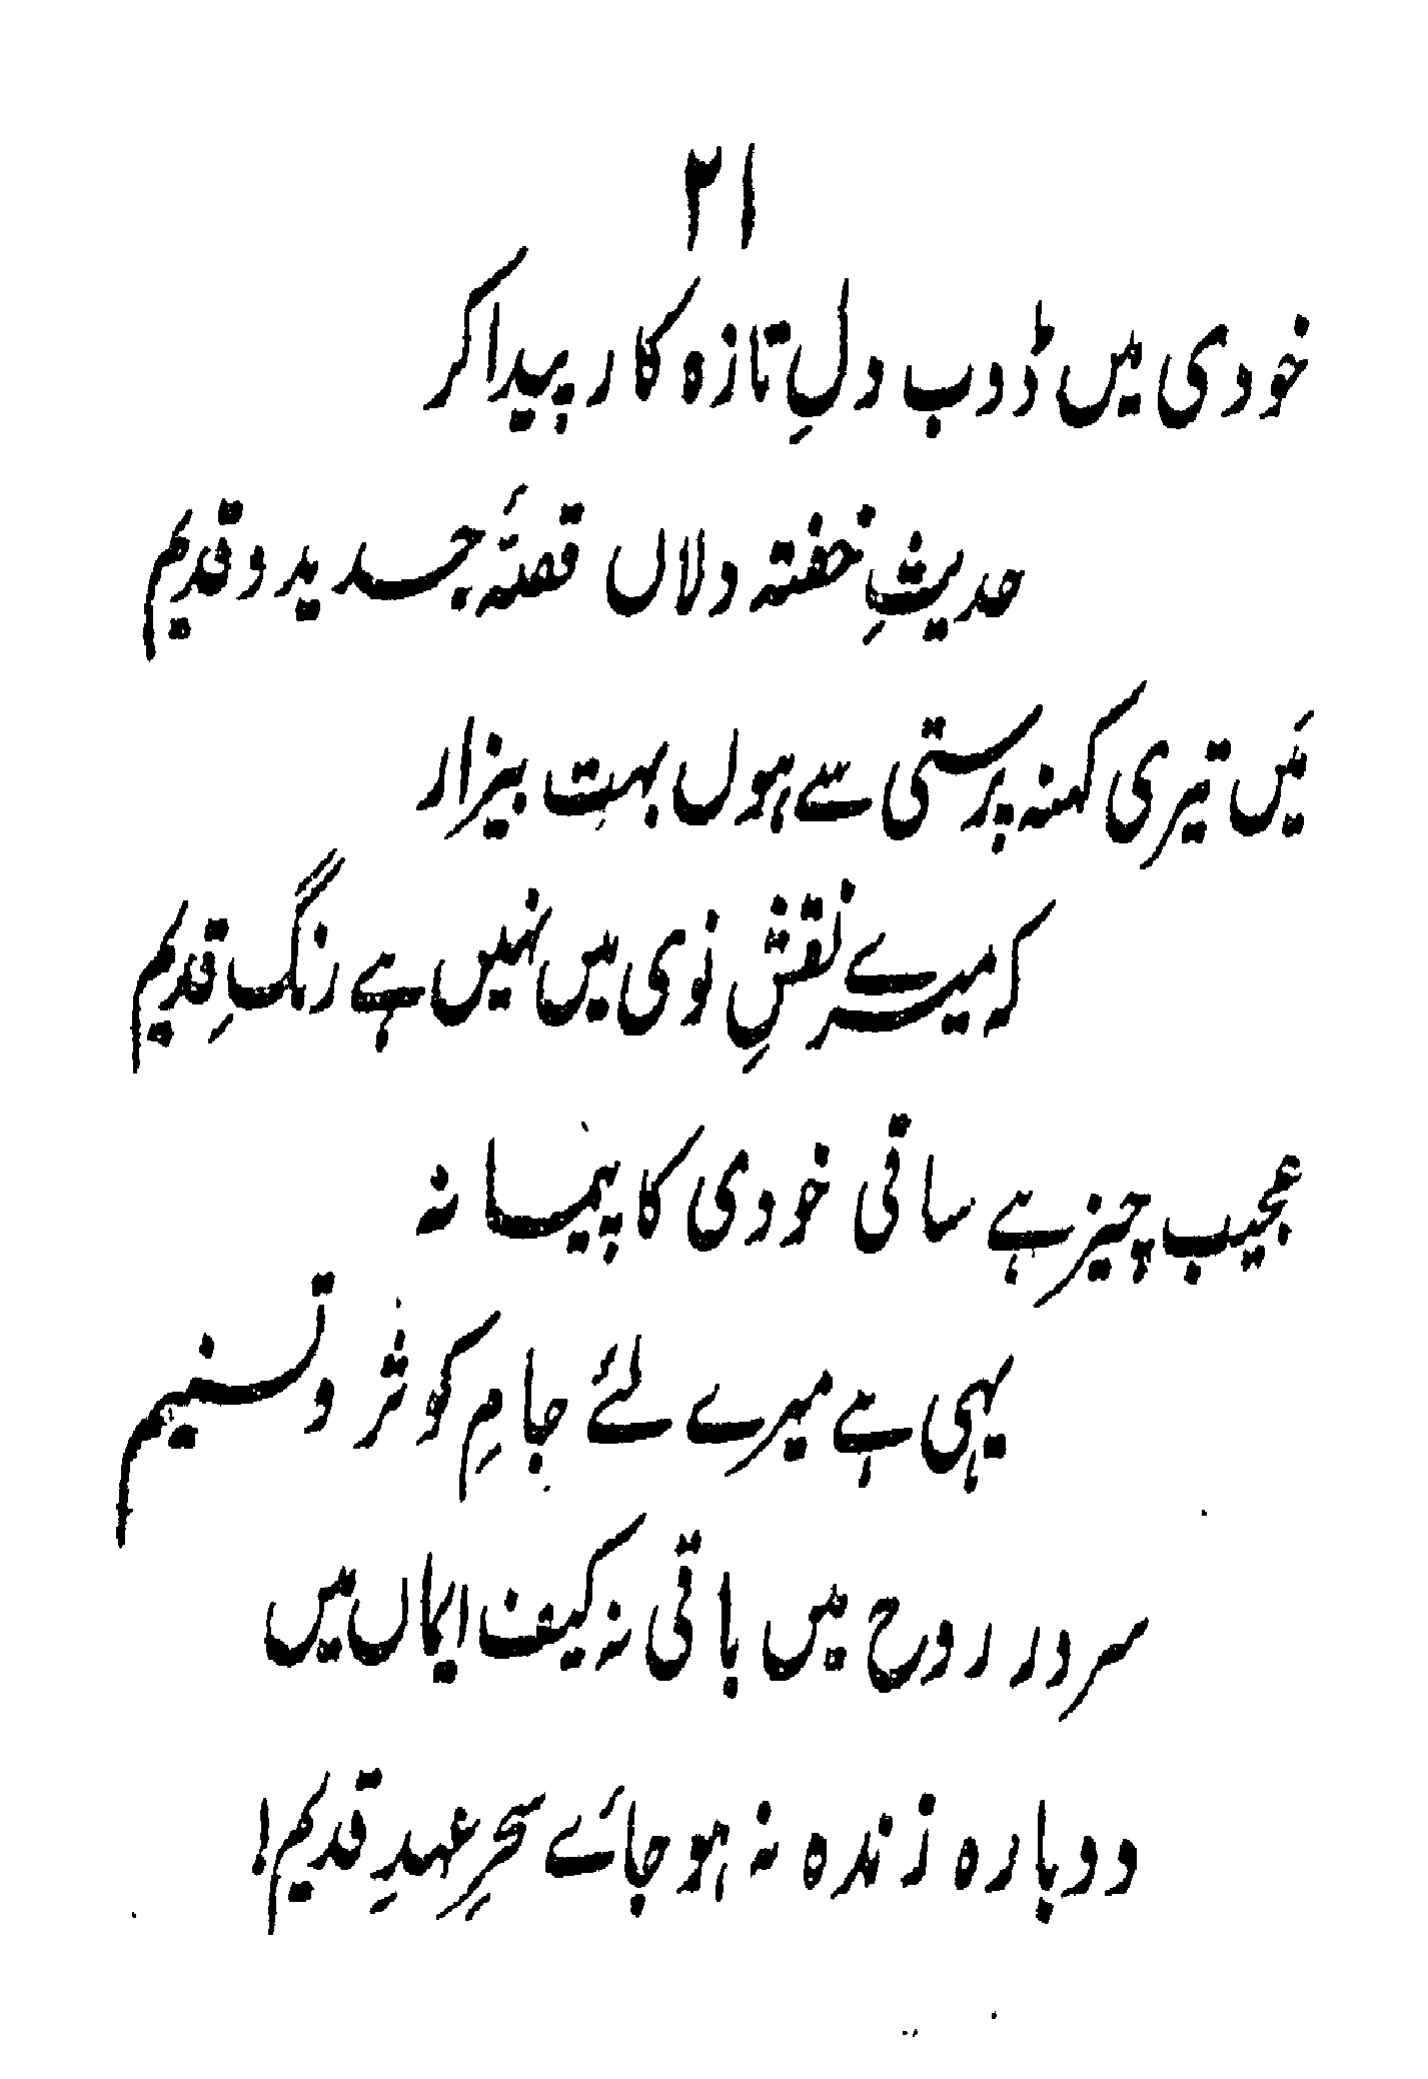 ۲۱
خودی میں ڈوب دلِ تازہ کار پیدا کر
حدیثِ خفتہ دلاں قصۂ جدید و قدیم
مَیں تیری کہنہ پرستی سے ہوں بہت بیزار
کہ میرے نقشِ نوی میں نہیں ہے رنگِ قدیم
عجیب چیز ہے ساقی خودی کا پیمانہ
یہی ہے میرے لئے جامِ کوثر و تسنیم
سرور روح میں باقی نہ کیف ایماں میں
دوبارہ زندہ نہ ہو جائے سحرِ عہدِ قدیم!